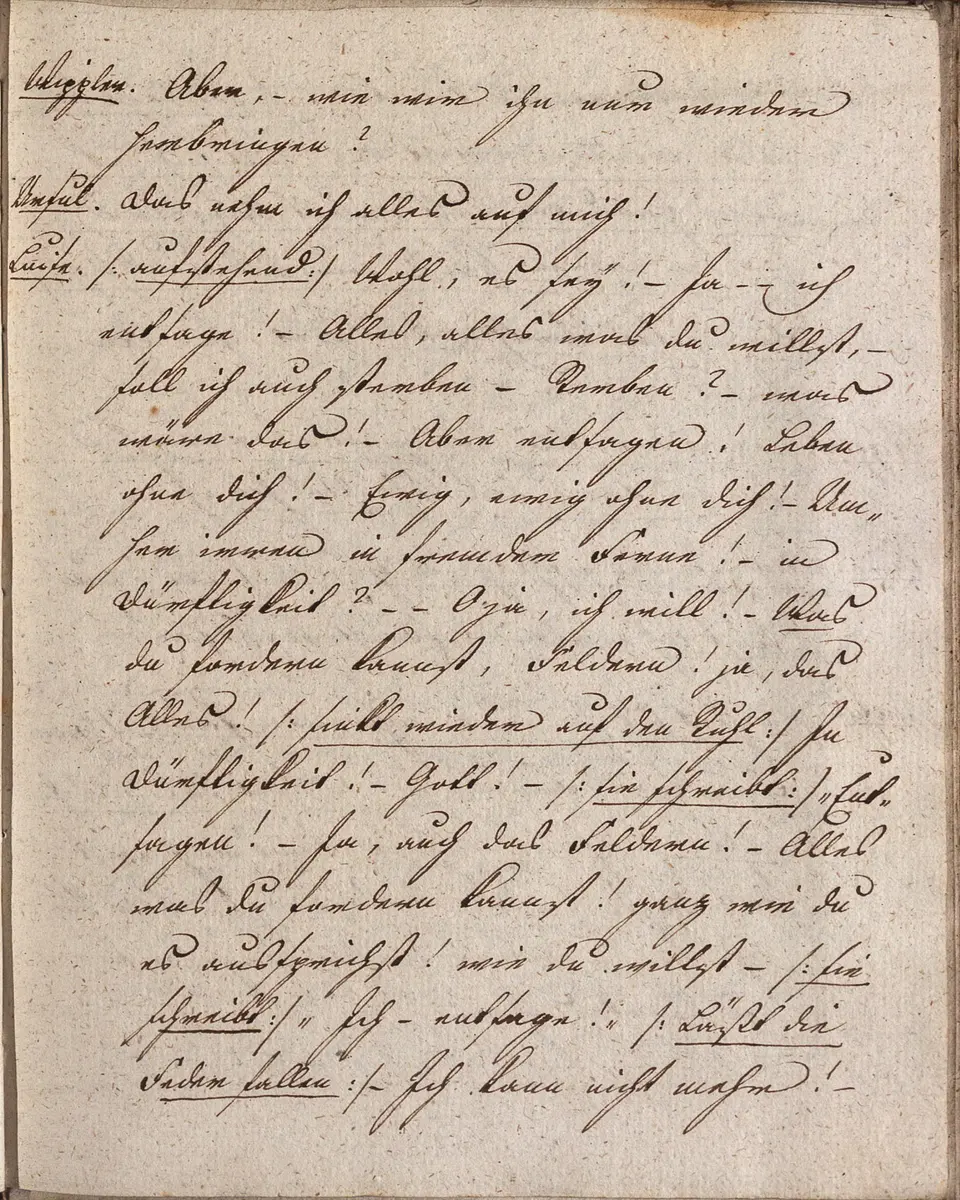 Wippler. Aber, – wie wir ihn nur wieder
herbringen?
Ursul. Das nehm ich alles auf mich!
Luise. /: aufstehend :/ Wohl, es sey! – Ja – – ich
entsage! – Alles, alles was du willst, –
soll ich auch sterben – Sterben? – was
wäre das! – Aber entsagen! Leben
ohne dich! – Ewig, ewig ohne dich! – Um„
her irren in fremder Ferne! – in
Dürftigkeit? – – O ja, ich will! – Was
du fordern kannst, Feldern! ja, das
Alles! /: sinkt wieder auf den Stuhl :/ In
Dürftigkeit! – Gott! – /: sie schreibt :/ „Ent„
sagen! – Ja, auch das Feldern! – Alles
was du fordern kannst! ganz wie du
es aussprichst! wie du willst – /: sie
schreibt :/ „ Ich – entsage! „ /: Läßt die
Feder fallen :/ – Ich kann nicht mehr! –